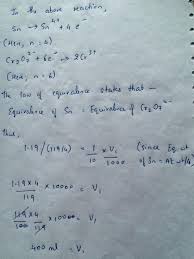 In the above reaction,
Sn → Sn⁴⁺ + 4 e⁻
(Here, n = 4)
Cr₂O₇²⁻ + 6e⁻ → 2Cr³⁺
(Here, n = 6)
The law of equivalence states that —
Equivalence of Sn = Equivalence of Cr₂O₇²⁻
Thus,
1.19 / (119/4) = 1/10 × V₁/1000 (since Eq. wt of Sn = At wt/4)
1.19 × 4 / 119 × 10000 = V₁
119 × 4 / 100 119 × 10000 = V₁
400 ml = V₁